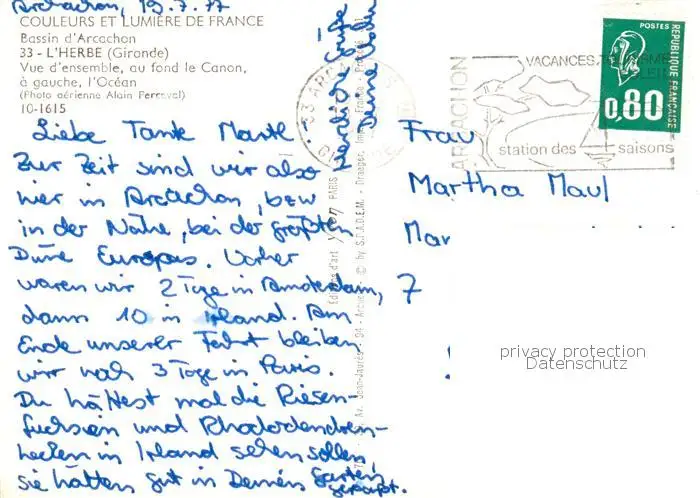 Arcachon, 19.7.77
COULEURS ET LUMIÈRE DE FRANCE
Bassin d'Arcachon
33 - L'HERBE (Gironde)
Vue d'ensemble, au fond le Canon,
à gauche, l'Océan
(Photo aérienne Alain Perceval)
10-1615
Liebe Tante Martl
Zur Zeit sind wir also
hier in Arcachon, bzw
in der Nähe, bei der größten
Düne Europas. Vorher
waren wir 2 Tage in Amsterdam,
dann 10 in Irland. Am
Ende unserer Fahrt bleiben
wir noch 3 Tage in Paris.
Du hättest mal die Riesen-
fuchsien und Rhododendren-
hecken in Irland sehen sollen,
sie hätten gut in Deinen Garten
gepaßt.
Herzliche Grüße
Deine
Editions d'art Yvon PARIS
Av. Jean-Jaurès - 94 - Arcueil
© by S.P.A.D.E.M. - Draeger, Imp.
33 ARC
ARCACHON
VACANCES
station des saisons
POSTES
0,80
REPUBLIQUE FRANÇAISE
Frau
Martha Maul
Mar
7
privacy protection
Datenschutz